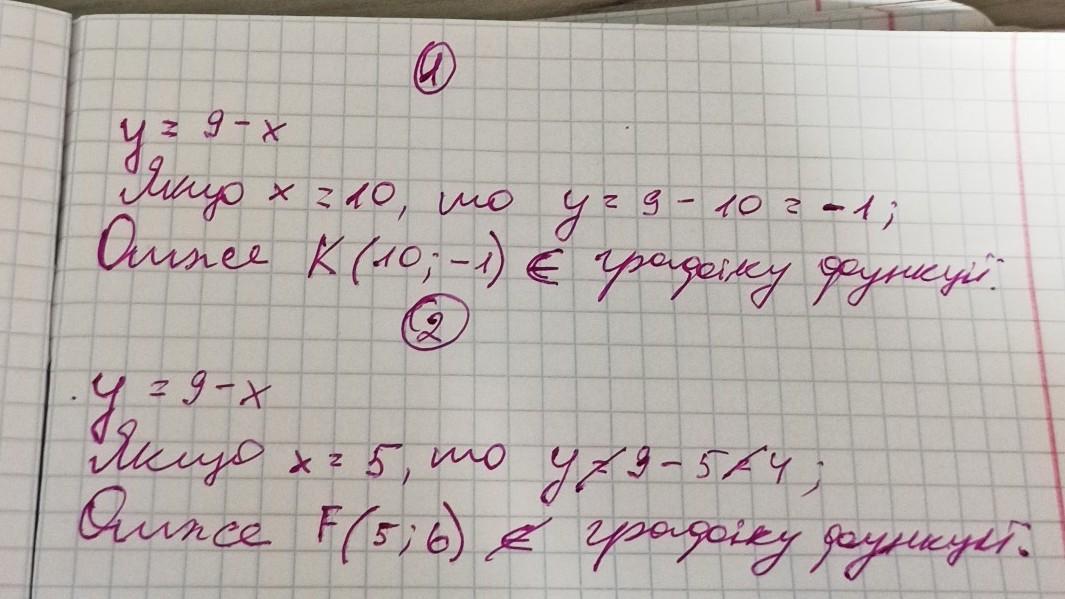 1
y = 9 - x
Якщо x = 10, то y = 9 - 10 = -1;
Отже K(10; -1) ∈ графіку функції.
2
y = 9 - x
Якщо x = 5, то y ≠ 9 - 5 ≠ 4;
Отже F(5; 6) ∉ графіку функції.